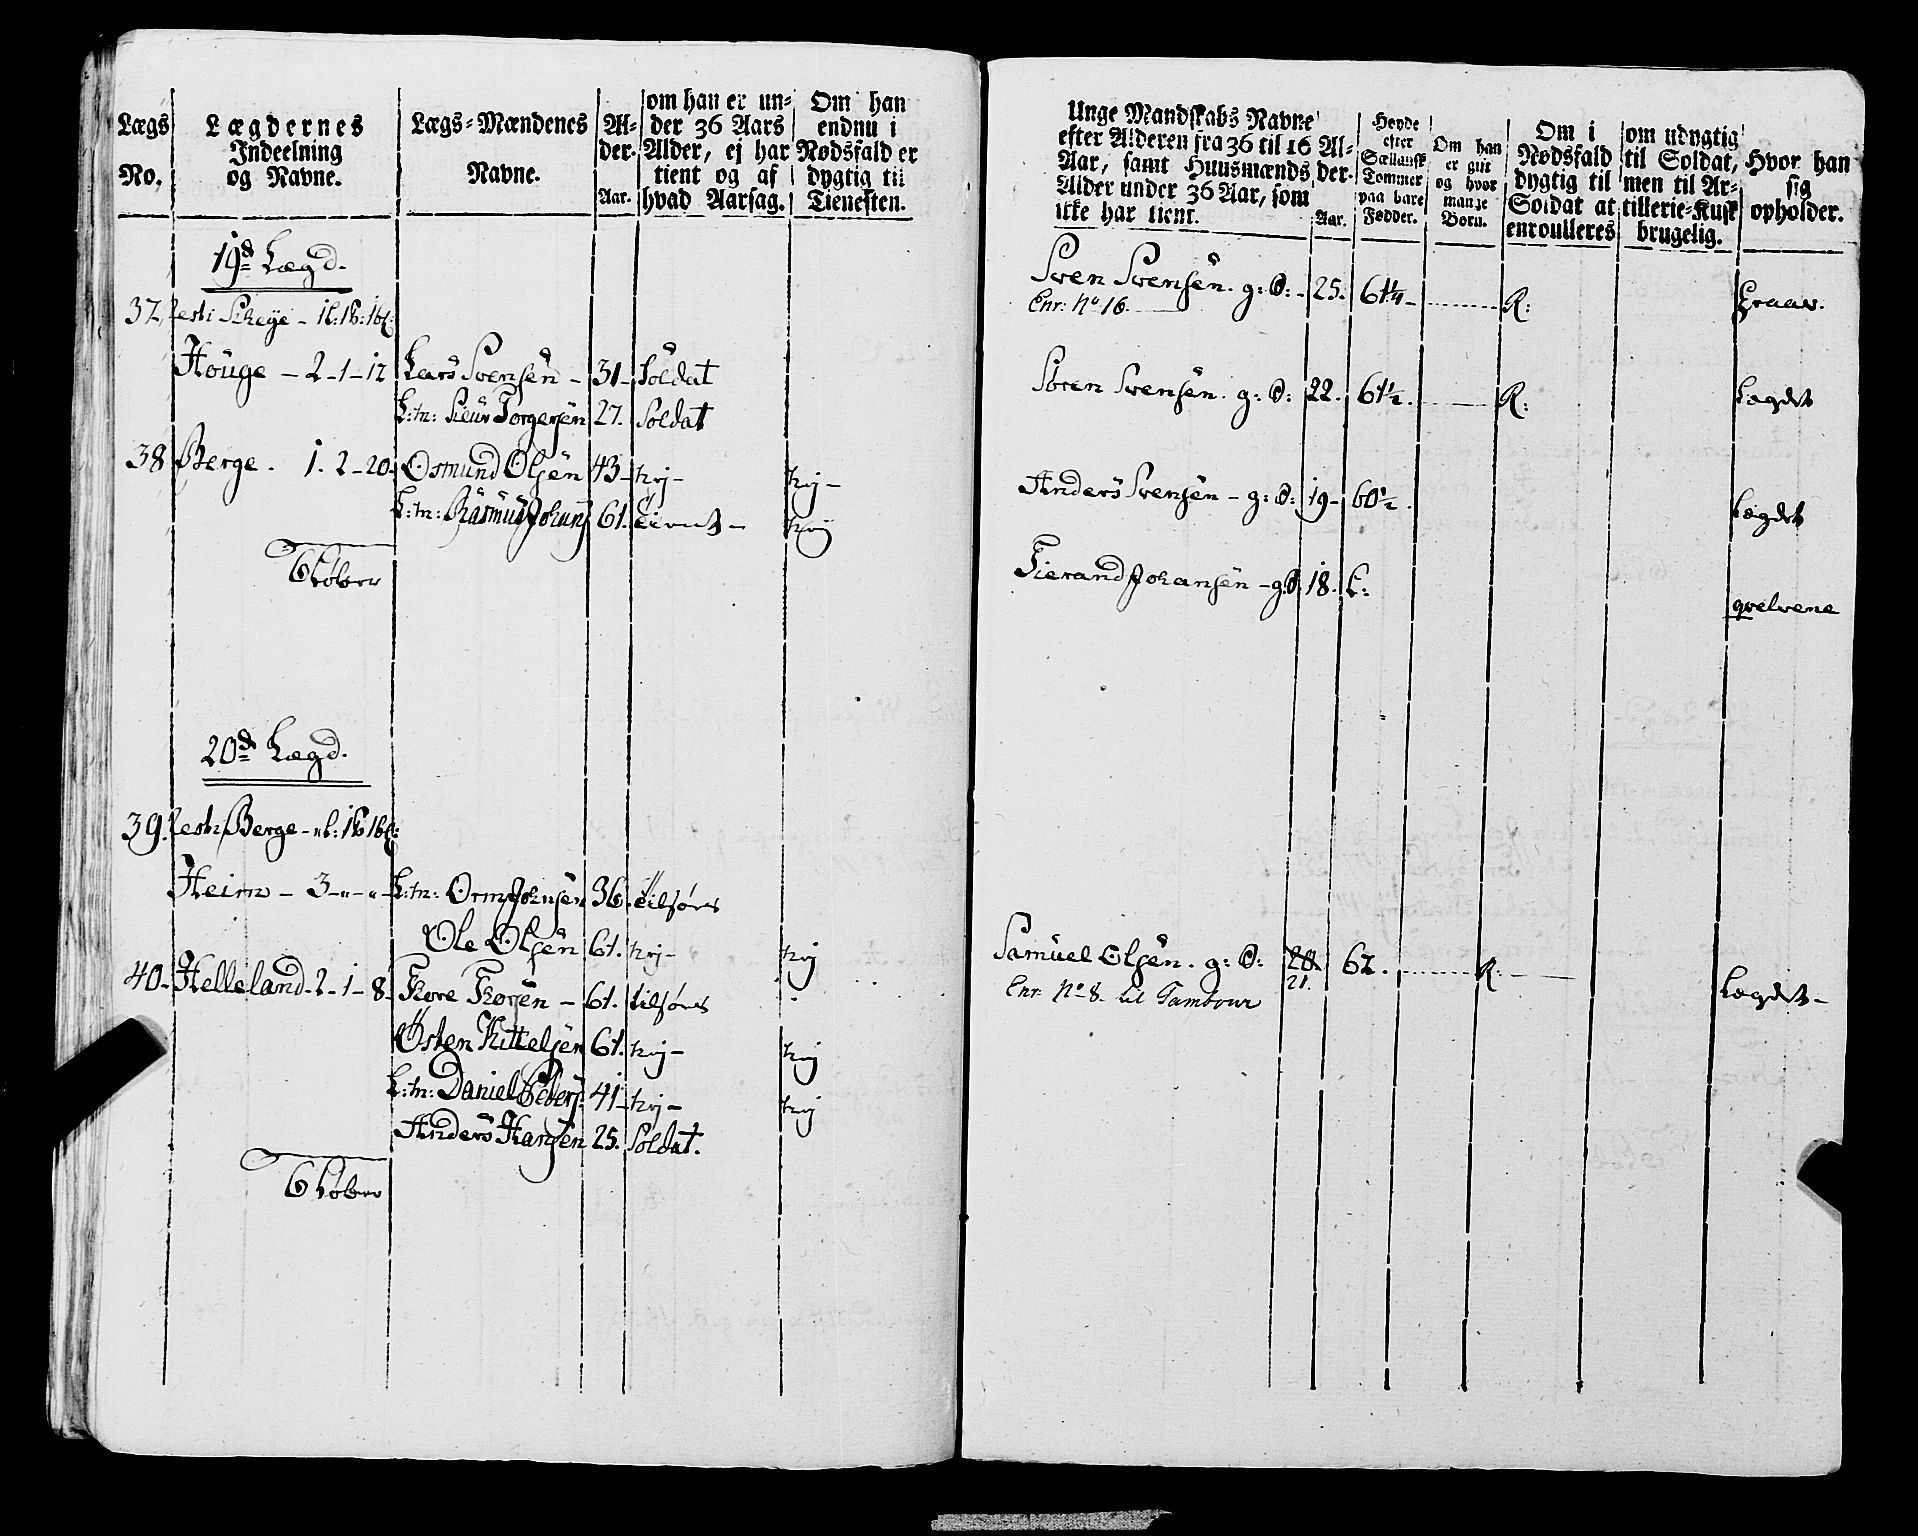 Lægs No.
Lægdernes Indeelning og Navne.
Lægs-Mændenes Navne.
Alder. Aar.
om han er under 36 Aars Alder, ej har tient og af hvad Aarsag.
Om han endnu i Nødsfald er dygtig til Tienesten.
19de Lægd.
37. Rest: Scheye
Houge – 2-1-12 Lars Svensen – 31 – Soldat
L:m: Siur Torgersen 27. Soldat
38 Berge . 1. 2-20. Osmund Olsen 43 – Nej – Nej –
L:m: Rasmus Johans 61. Tient – Nej
6 Løber
20de Lægd.
39. Rest: Berge
Heim – 3-"-"- L:m: Orm Johnsen 36. tilføres
Ole Olsen 61. Nej – Nej
40 – Helleland – 2-1-8 – Tore Torsen – 61. tilføres
Østen Kittelsen 61. Nej – Nej
L:m: Daniel Peders: 41 – Nej – Nej
Anders Hansen 25. Soldat.
6 Løber
Unge Mandskabs Navne efter Alderen fra 36 til 16 Aar, samt Huusmænds Alder under 36 Aar, som ikke har tient.
Alder. Aar.
Høyde efter Sællansk Tommer paa bare Fødder.
Om han er gift og hvor mange Børn.
Om i Nødsfald dygtig til Soldat at enroulleres
om udygtig til Soldat, men til Artillerie-Kusk brugelig.
Hvor han sig opholder.
Sven Svensen. g: S: – 25. 61¼ – R: Graav.
Enr: No 16.
Søren Svensen. g: S: 22. 61½. R: Lægdet
Anders Svensen – g: S: 19 – 60½. Lægdet
Tierand Johansen – g: S: 18. L: qvelvene
Samuel Olsen. g: S: 20. 62. R: Lægdet –
21.
Enr: No 8. til Tambour